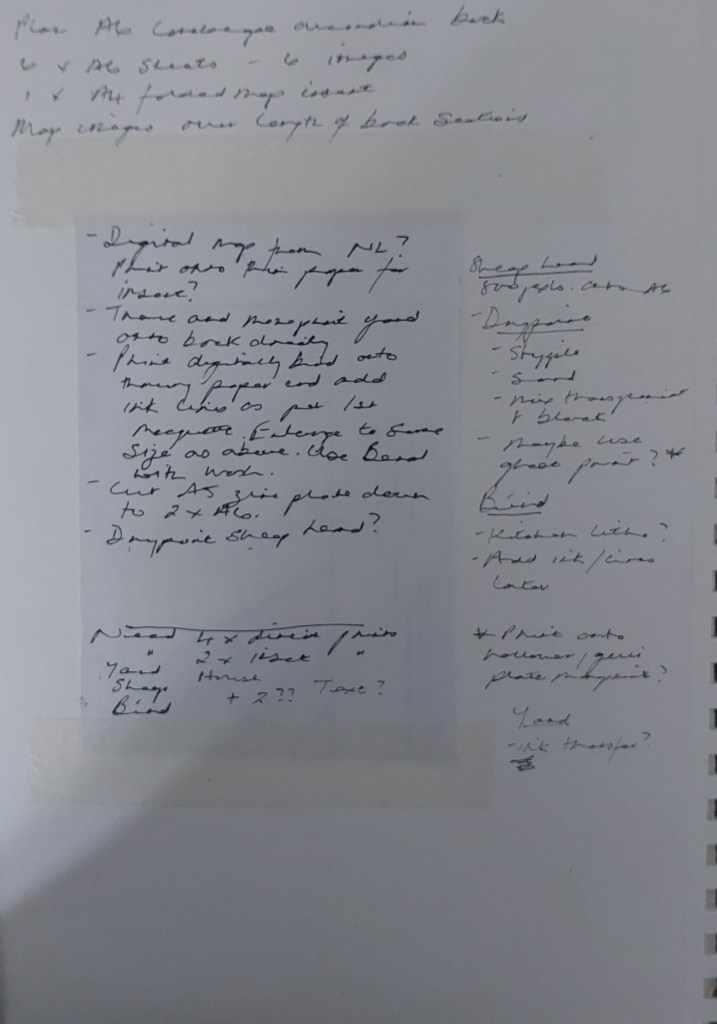 Plan A6 Landscape concertina book
6 x A6 sheets - 6 images
1 x A4 folded map insert
Map images over length of book sections
- Digital map from NL?
Print onto thin paper for
insert?
- Trace and monoprint yard
onto book directly
- Print digitally bird onto
paper and add
ink lines as per 1st
maquette. Enlarge to same
size as above. Use Bead
with work.
- Cut A5 zinc plate down
to 2 x A6.
- Drypoint Sheep head?
Need 4 x direct prints
" 2 x inset "
Yard House
Sheep + 2?? Text?
Bird
Sheep head
onto A6
- Drypoint
- Stipple
- Sand
- Mix transparent
& black
- Maybe use
ghost print? *
Bird
- Kitchen litho?
- Add ink/lines
later
* Print onto
/gelli
plate monoprint?
Yard
- ink transfer?